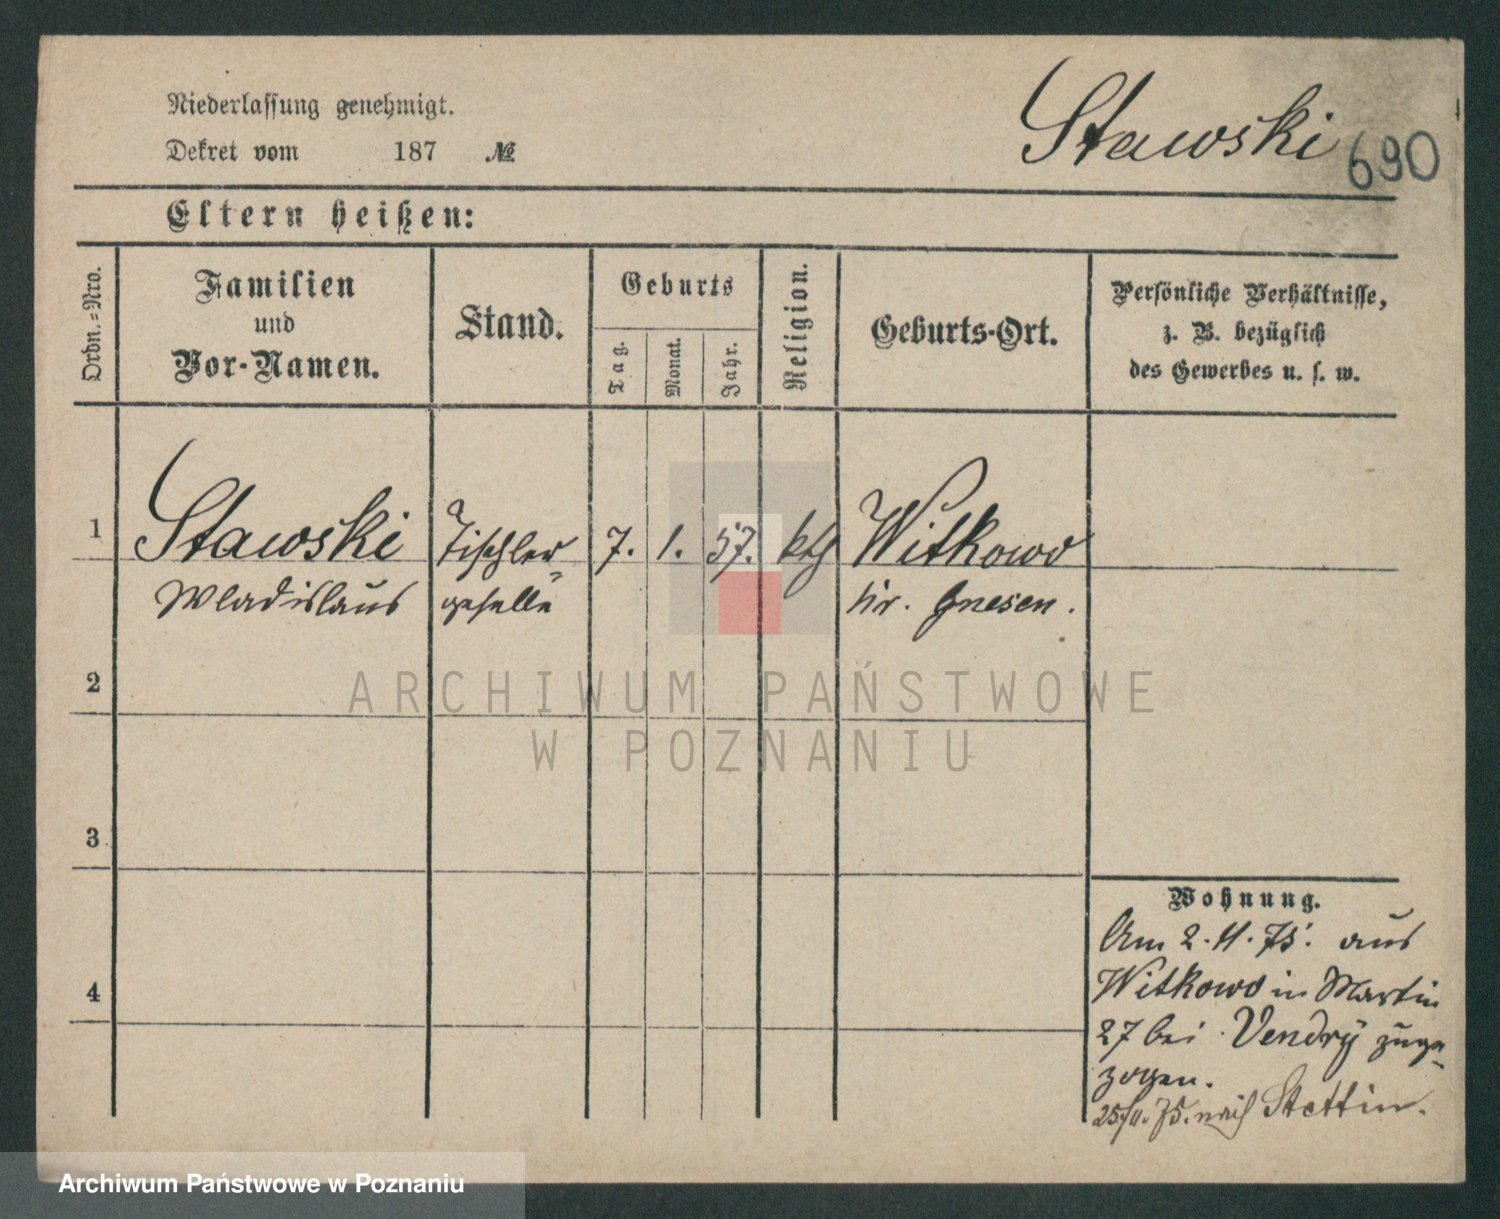 Niederlassung genehmigt.
Dekret vom 187 №
Stawski
690
Eltern heißen:
Ordn.-Nro.
Familien
und
Vor-Namen.
Stand.
Geburts
Tag.
Monat.
Jahr.
Religion.
Geburts-Ort.
Persönliche Verhältnisse,
z. B. bezüglich
des Gewerbes u. s. w.
1
Stawski
Wladislaus
Tischler
geselle
7. 1. 57.
kth
Witkowo
Kr. Gnesen.
2
ARCHIWUM PAŃSTWOWE
W POZNANIU
3
4
Wohnung.
Am 2. 11. 75. aus
Witkowo in Martin
27 bei Vendry zuge-
zogen.
25/11. 75. nach Stettin.
Archiwum Państwowe w Poznaniu